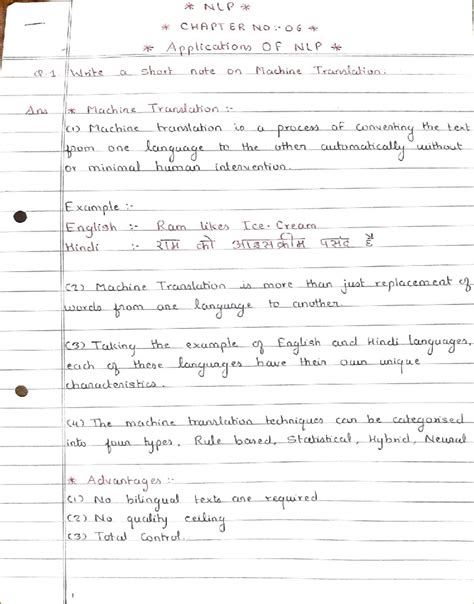 * NLP *
* CHAPTER NO:- 06 *
* Applications OF NLP *
Q.1 Write a short note on Machine Translation.
Ans * Machine Translation :-
(1) Machine translation is a process of converting the text
from one language to the other automatically without
or minimal human intervention.
Example :-
English :- Ram likes Ice-Cream
Hindi :- राम को आइसक्रीम पसंद है
(2) Machine Translation is more than just replacement of
words from one language to another.
(3) Taking the example of English and Hindi languages,
each of these languages have their own unique
characteristics.
(4) The machine translation techniques can be categorised
into four types, Rule based, Statistical, Hybrid, Neural
* Advantages :-
(1) No bilingual texts are required
(2) No quality ceiling
(3) Total control.